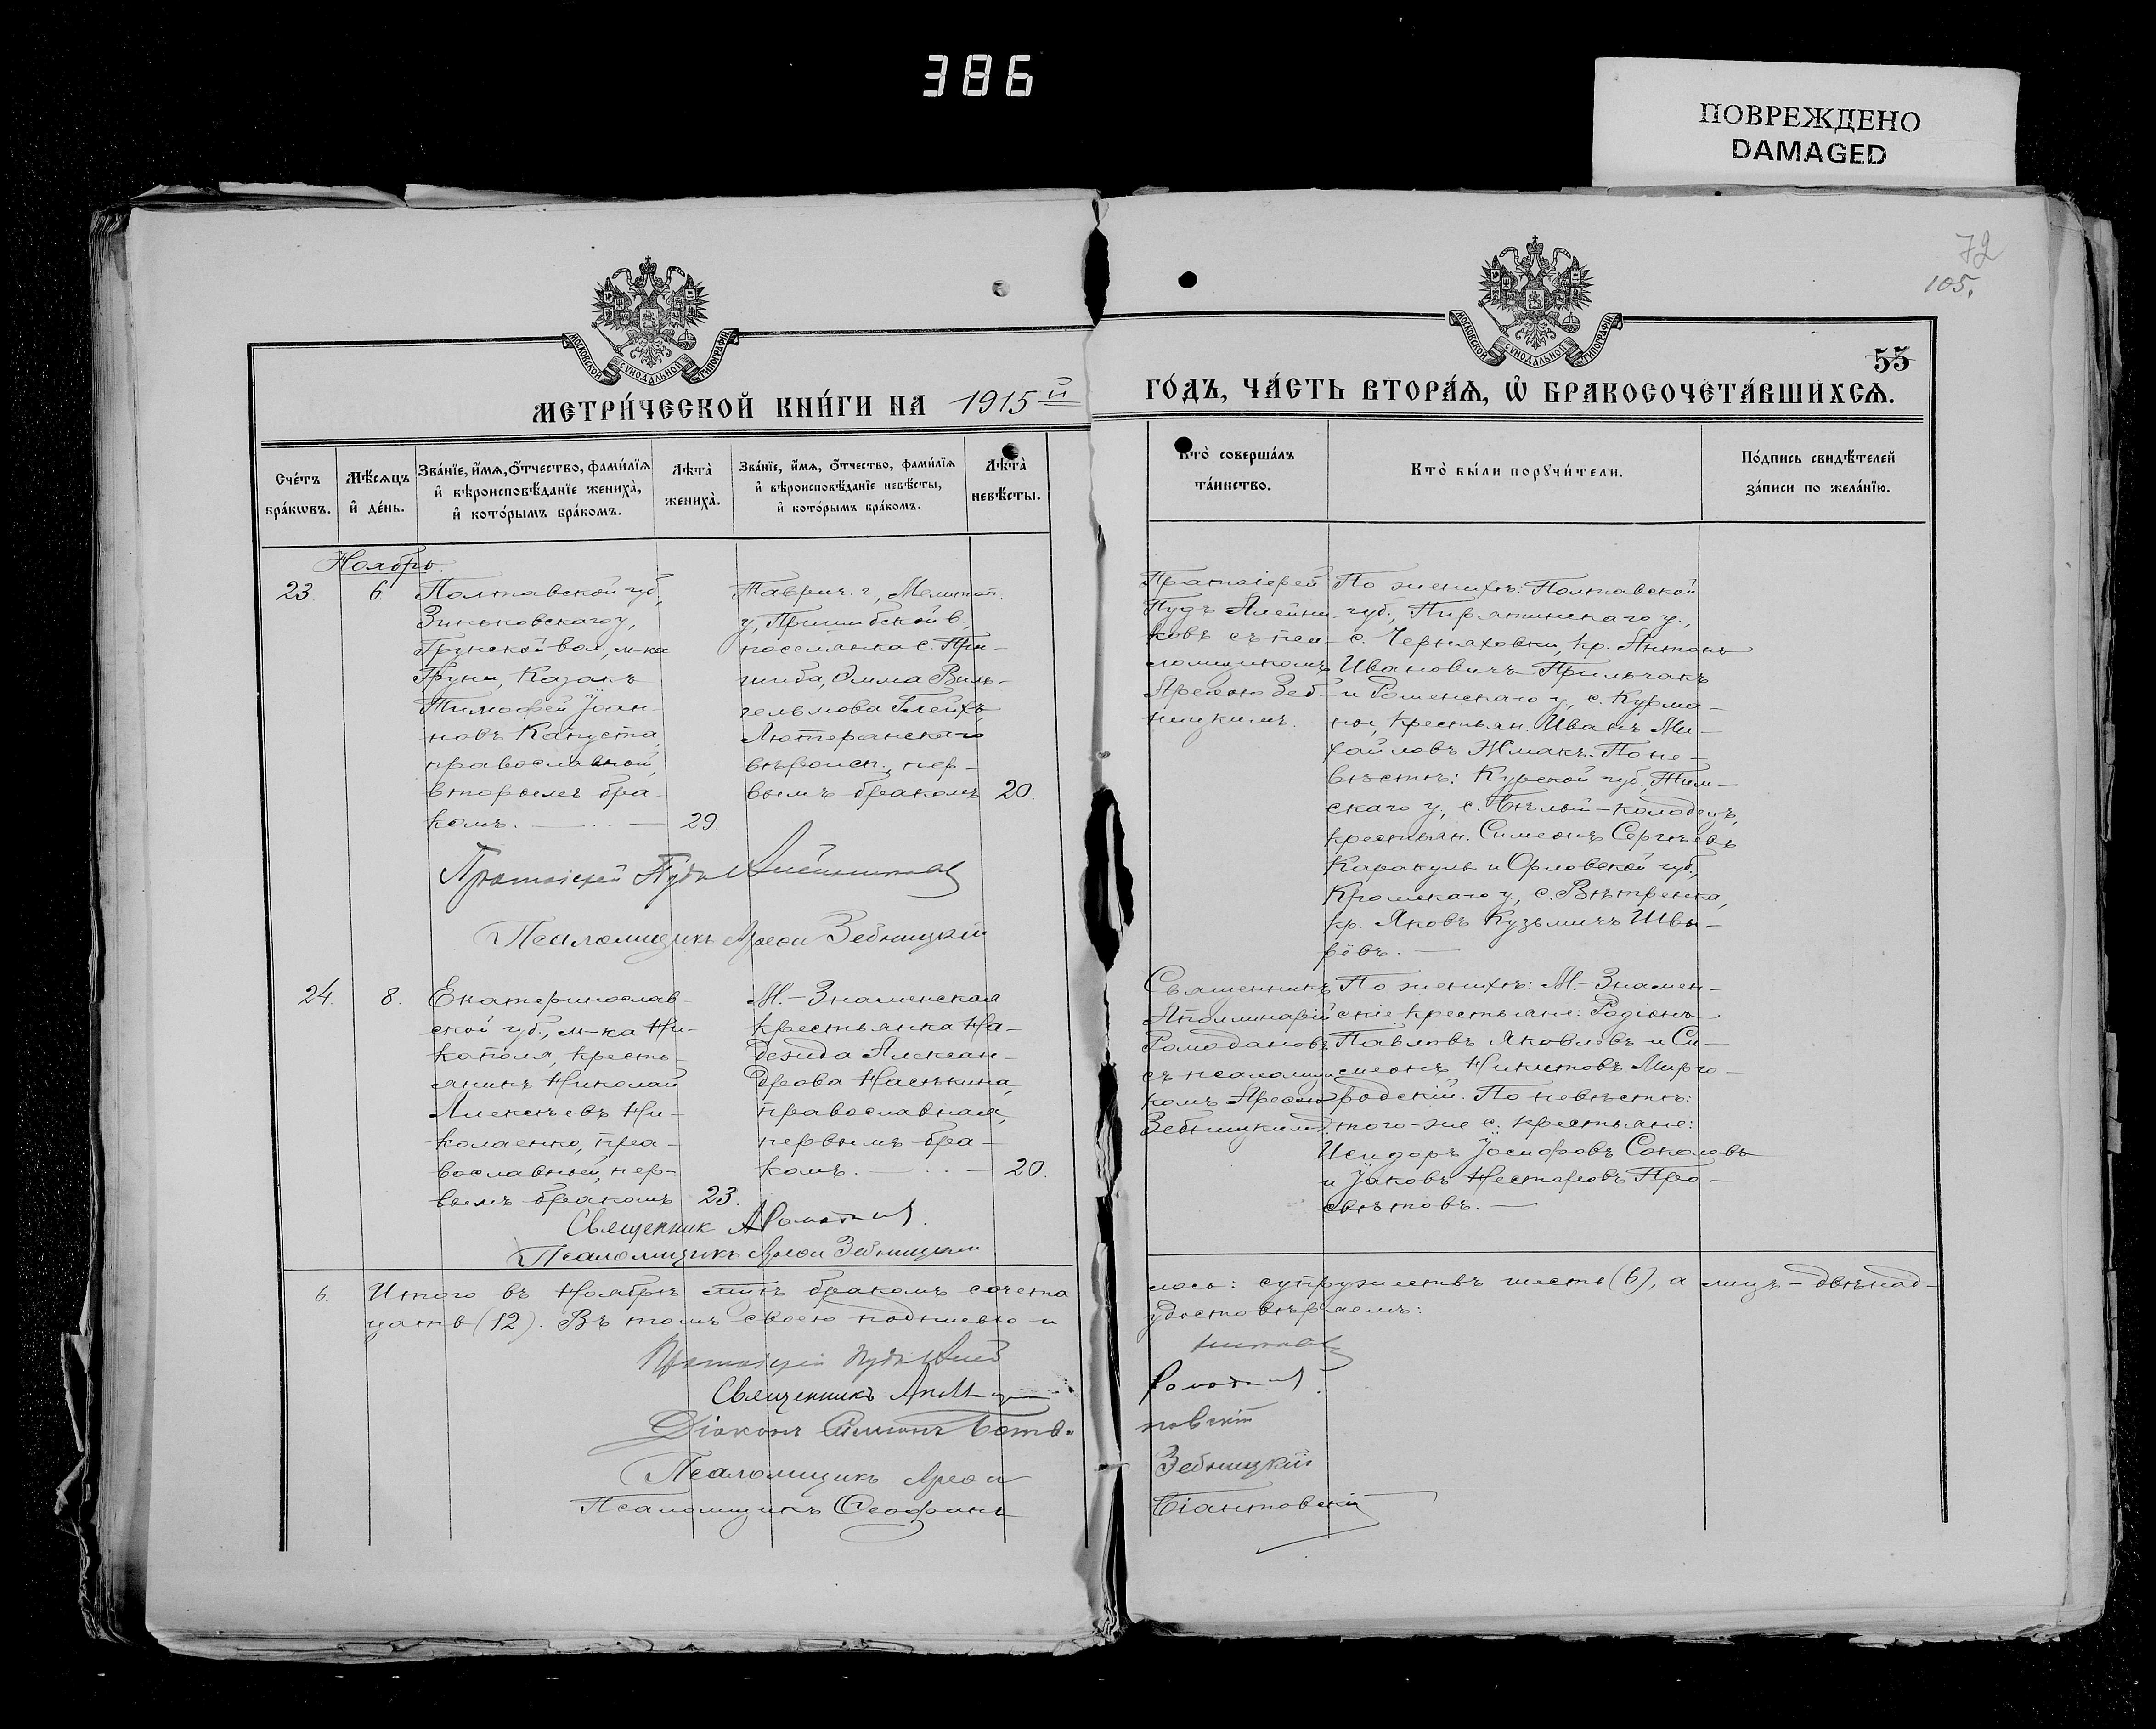 386
ПОВРЕЖДЕНО
DAMAGED
72
105.
55
МОСКОВСКОЙ СѴНОДАЛЬНОЙ ТИПОГРАФІИ
МОСКОВСКОЙ СѴНОДАЛЬНОЙ ТИПОГРАФІИ
МЕТРИ́ЧЕСКОЙ КНИ́ГИ НА 1915й
ГО́ДЪ, ЧА́СТЬ ВТОРА́Ѧ, Ѡ҆ БРАКОСОЧЕТА́ВШИХСѦ.
Сче́тъ бра́кѡвъ.
Мѣ́сѧцъ и҆ де́нь.
Зва́нїе, и҆́мѧ, ѻ҆́тчество, фами́лїѧ и҆ вѣроисповѣ́данїе жениха̀, и҆ кото́рымъ бра́комъ.
Лѣта̀ жениха̀.
Зва́нїе, и҆́мѧ, ѻ҆́тчество, фами́лїѧ и҆ вѣроисповѣ́данїе невѣ́сты, и҆ кото́рымъ бра́комъ.
Лѣта̀ невѣ́сты.
Кто̀ соверша́лъ та́инство.
Кто̀ бы́ли порꙋчи́тели.
По́дпись свидѣ́телей за́писи по жела́нїю.
Ноябрь.
23. 6.
Полтавской губ.,
Зиньковскаго у.,
Грунской вол., м-ка
Груни, Казакъ
Тимофей Іоан-
новъ Капуста,
православный,
вторымъ бра-
комъ. — 29.
Таврич. г., Мелитоп.
у., Пришибской в.,
поселянка с. При-
шиба, Елима Виль-
гельмова Глейхъ,
Лютеранскаго
вѣроисп., пер-
вымъ бракомъ 20.
Протоіерей
Пудъ Алейни-
ковъ съ пса-
ломщикомъ
Арефою Зеб-
ницкимъ.
По женихѣ: Полтавской
губ., Пирятинскаго у.,
с. Черняховки, кр. Антонъ
Ивановичъ Прильчакъ
и Роменскаго у., с. Курма-
ны, крестьян. Иванъ Ми-
хайловъ Жмакъ. По не-
вѣстѣ: Курской губ., Тим-
скаго у., с. Бѣлый-колодезь,
крестьян. Симеонъ Сергѣевъ
Каракуль и Орловской губ.,
Кромскаго у., с. Вѣтренка,
кр. Яковъ Кузьмичъ Швы-
рёвъ. —
Протоіерей Пудъ Алейниковъ
Псаломщикъ Арефа Зебницкій
24. 8.
Екатеринослав-
ской губ., м-ка Ни-
кополя, кресть-
янинъ Николай
Алексѣевъ Ни-
колаенко, пра-
вославный, пер-
вымъ бракомъ 23.
М.-Знаменская
крестьянка На-
дежда Алексан-
дрова Насѣкина,
православная,
первымъ бра-
комъ. — 20.
Священникъ
Аполлинарій
Ромодановъ
съ псаломщи-
комъ Арефою
Зебницкимъ.
По женихѣ: М.-Знамен-
скіе крестьяне: Родіонъ
Павловъ Яковлевъ и Си-
меонъ Никитовъ Мирго-
родскій. По невѣстѣ:
того-же с. крестьяне:
Исидоръ Іосифовъ Соколовъ
и Іаковъ Несторовъ Про-
свѣтовъ. —
Священник А Ромоданов.
Псаломщикъ Арефа Зебницкій
6. Итого въ Ноябрѣ м-цѣ бракомъ сочета
лось: супружествъ шесть (6), а лицъ — двѣнад-
цать (12). Въ томъ своею подписью и
удостовѣряемъ:
Протоіерей Пудъ Алей
никовъ
Священникъ
Ромоданов.
Діаконъ Симеонъ
новскій
Псаломщикъ Арефа
Зебницкій
Псаломщикъ Ѳеофанъ
Біантовскій